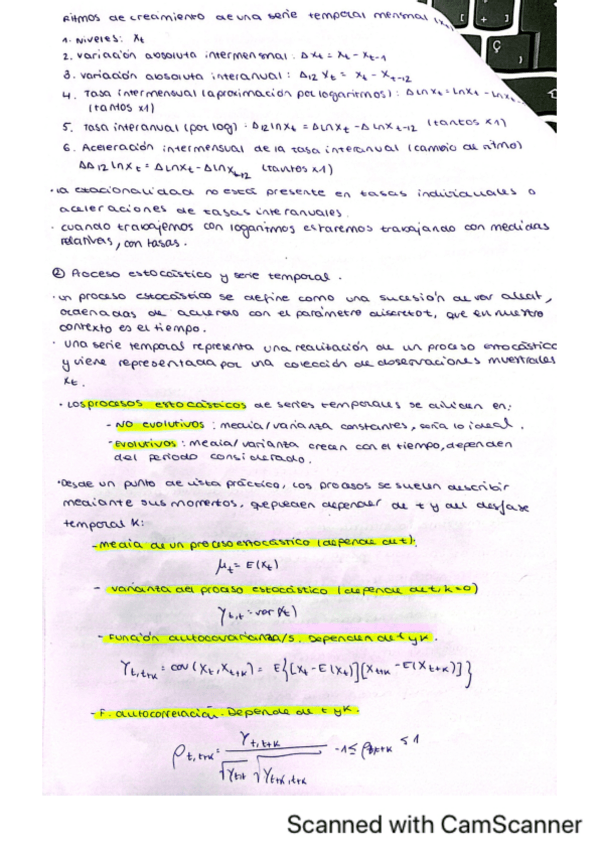 Ritmos de crecimiento de una serie temporal mensual (Xt)
1. Niveles: Xt
2. variación absoluta intermensual: ΔXt = Xt - Xt-1
3. variación absoluta interanual: Δ12 Xt = Xt - Xt-12
4. Tasa intermensual (aproximación por logaritmos): ΔlnXt = lnXt - lnXt-
(tantos x1)
5. Tasa interanual (por log). Δ12lnXt = ΔlnXt - ΔlnXt-12 (tantos x1)
6. Aceleración intermensual de la tasa interanual (cambio de ritmo)
ΔΔ12lnXt = ΔlnXt - ΔlnXt-12 (tantos x1)
· la estacionalidad no está presente en tasas individuales o
aceleraciones de tasas interanuales.
· cuando trabajemos con logaritmos estaremos trabajando con medidas
relativas, con tasas.
② Proceso estocástico y serie temporal.
· un proceso estocástico se define como una sucesión de var aleat,
ordenadas de acuerdo con el parámetro discreto t, que en nuestro
contexto es el tiempo.
· una serie temporal representa una realización de un proceso estocástico
y viene representada por una colección de observaciones muestrales
Xt.
· Los procesos estocásticos de series temporales se dividen en:
- NO evolutivos: media/varianza constantes, sería lo ideal.
- Evolutivos: media/varianza crecen con el tiempo, dependen
del periodo considerado.
· Desde un punto de vista práctico, los procesos se suelen describir
mediante sus momentos, que pueden depender de t y del desfase
temporal K:
- media de un proceso estocástico (depende de t):
μt = E(Xt)
- varianza del proceso estocástico (depende de t, k=0)
γt,t = var(Xt)
- Función autocovarianza/s. Dependen de t y K.
γt,t+K = cov(Xt, Xt+K) = E{[Xt - E(Xt)][Xt+K - E(Xt+K)]}
- F. autocorrelación. Depende de t y K.
ρt,t+K = γt,t+K / √γt,t √γt+K,t+K   -1 ≤ ρt,t+K ≤ 1
Scanned with CamScanner